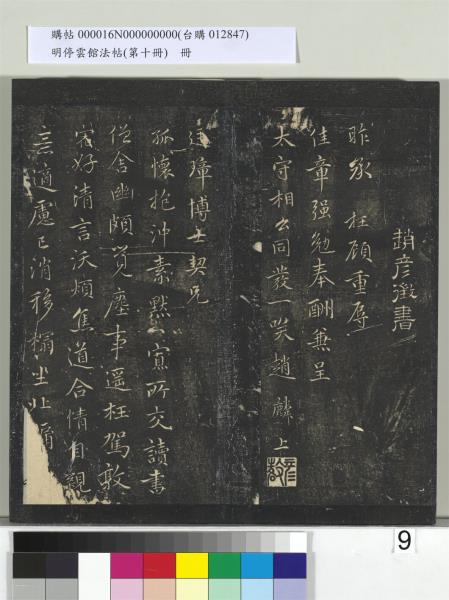 購帖 000016N000000000(台購 012847)
明停雲館法帖(第十冊) 冊
趙彥徵書
昨承 枉顧重辱
佳章强勉奉酬兼呈
太守相公同發一笑趙麟上
廷璋博士契兄
孤懷抱沖素默寡所交讀書
僧舍幽頗覺塵事遥枉駕敦
宿好清言沃煩焦道合情自親
言適慮已消移榻坐北
9